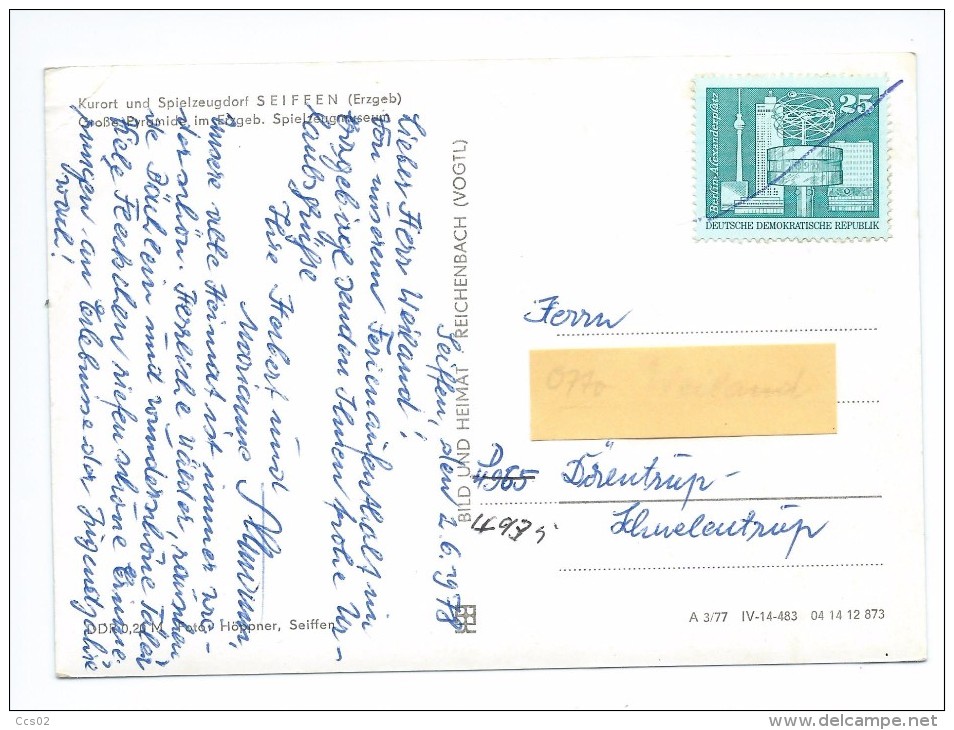 Kurort und Spielzeugdorf SEIFFEN (Erzgeb)
Große Pyramide im Erzgeb. Spielzeugmuseum
Seiffen, den 2.6.1978
Lieber Herr Weiland!
Von unserem Ferienaufenthalt im
Erzgebirge senden Ihnen frohe Ur-
laubsgrüße
Ihre Herbert und
Marianne
unsere alte Heimat ist immer wie-
der schön. Herrliche Wälder, rauschen-
de Bächlein und wunderschöne Täler
Viele Fleckchen riefen schöne Erinne-
rungen an Erlebnisse der Jugendjahre
wach!
DDR 0,20 M Foto: Höppner, Seiffen
BILD UND HEIMAT REICHENBACH (VOGTL)
25
Berlin-Alexanderplatz
DEUTSCHE DEMOKRATISCHE REPUBLIK
Herrn
Otto
D
4965 Dörentrup-
Schwelentrup
A 3/77 IV-14-483 04 14 12 873
Ccs02
delcampe.net